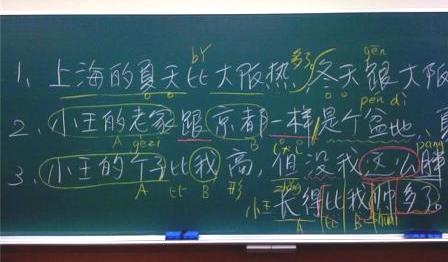 1、上海的夏天比大阪热多了，冬天跟大阪
2、小王的老家跟京都一样，是个盆地，
3、小王的个子比我高，但没我这么胖
小王长得比我帅多了。